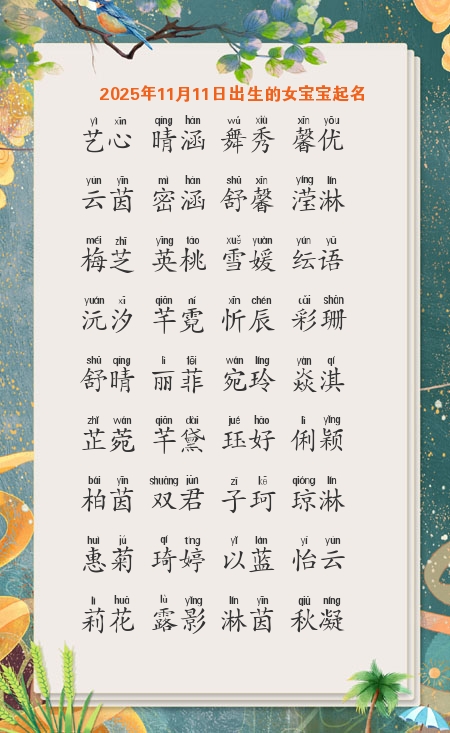 2025年11月11日出生的女宝宝起名
yì xīn qíng hán wǔ xiù xīn yōu
艺心 晴涵 舞秀 馨优
yún yīn mì hán shū xīn yíng lín
云茵 密涵 舒馨 滢淋
méi zhī yīng táo xuě yuàn yún yǔ
梅芝 英桃 雪媛 纭语
yuán xī qiān ní xīn chén cǎi shān
沅汐 芊霓 忻辰 彩珊
shū qíng lì fēi wǎn líng yàn qí
舒晴 丽菲 宛玲 焱淇
zhǐ wǎn qiān dài jué hǎo lì yǐng
芷菀 芊黛 珏好 俐颖
bǎi yīn shuāng jūn zǐ kē qióng lín
柏茵 双君 子珂 琼淋
huì jú qí tíng yǐ lán yí yún
惠菊 琦婷 以蓝 怡云
lì huā lù yǐng lín yīn qiū níng
莉花 露影 淋茵 秋凝